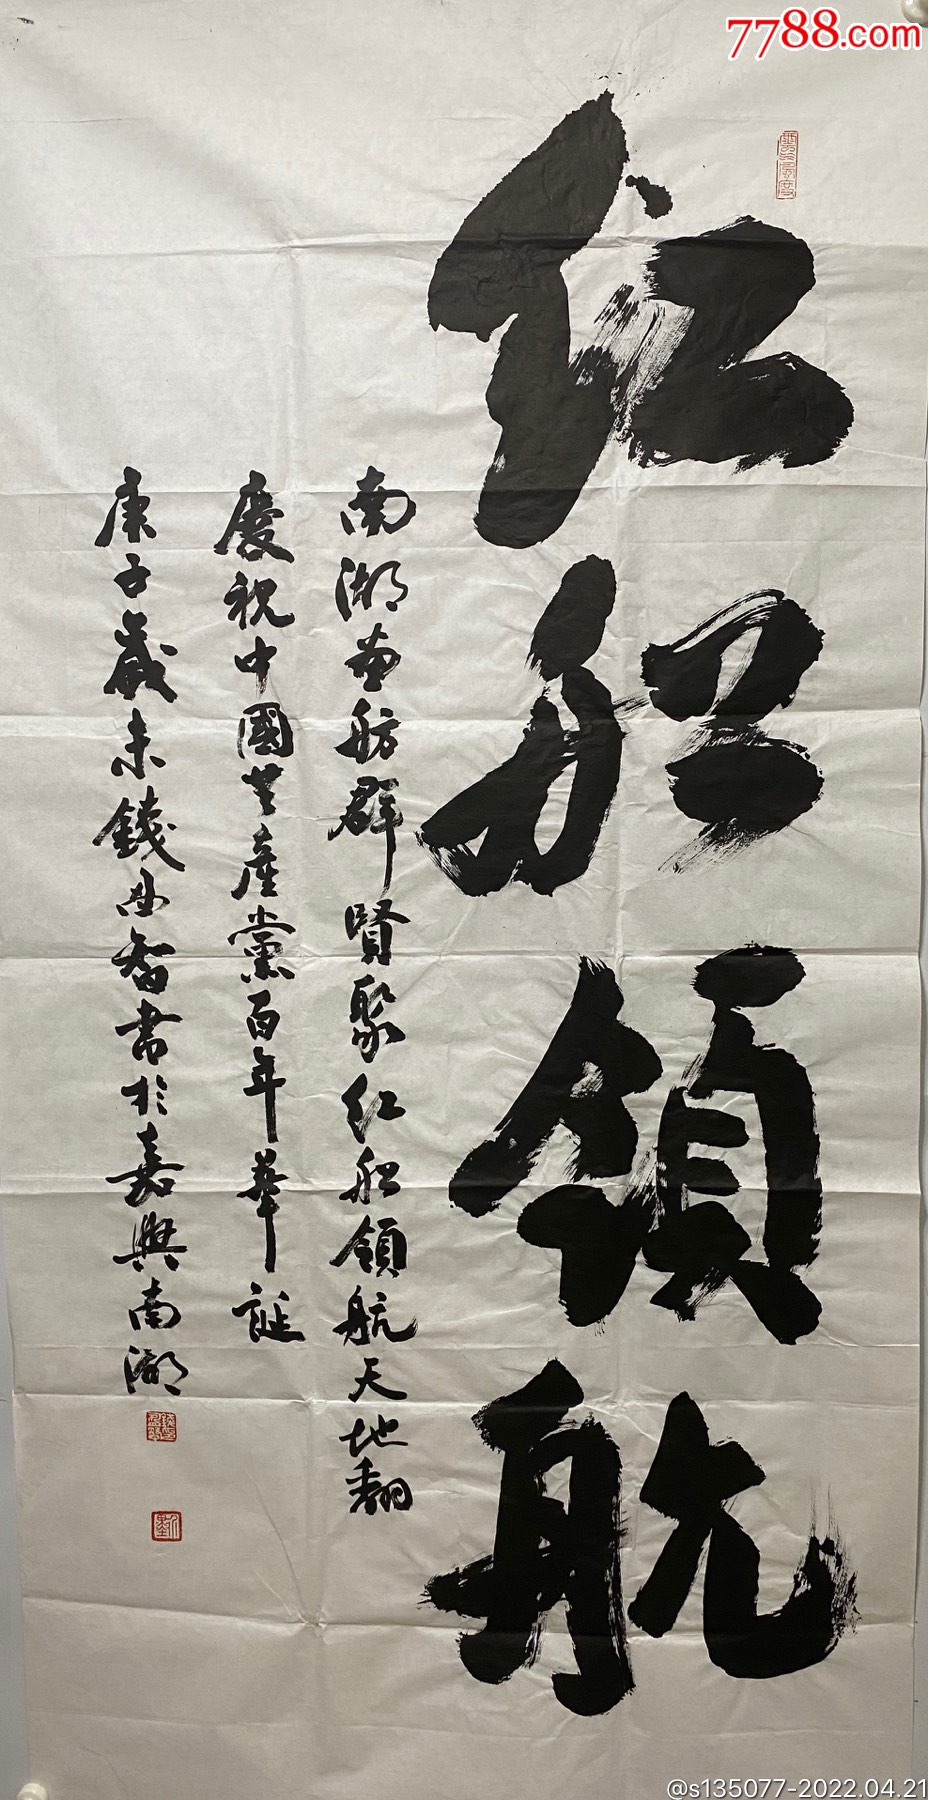 7788.com
红船領航
南湖畫舫群賢聚红船領航天地翻
慶祝中國共産黨百年華誕
庚子歲末錢西智書於嘉興南湖
@s135077-2022.04.21